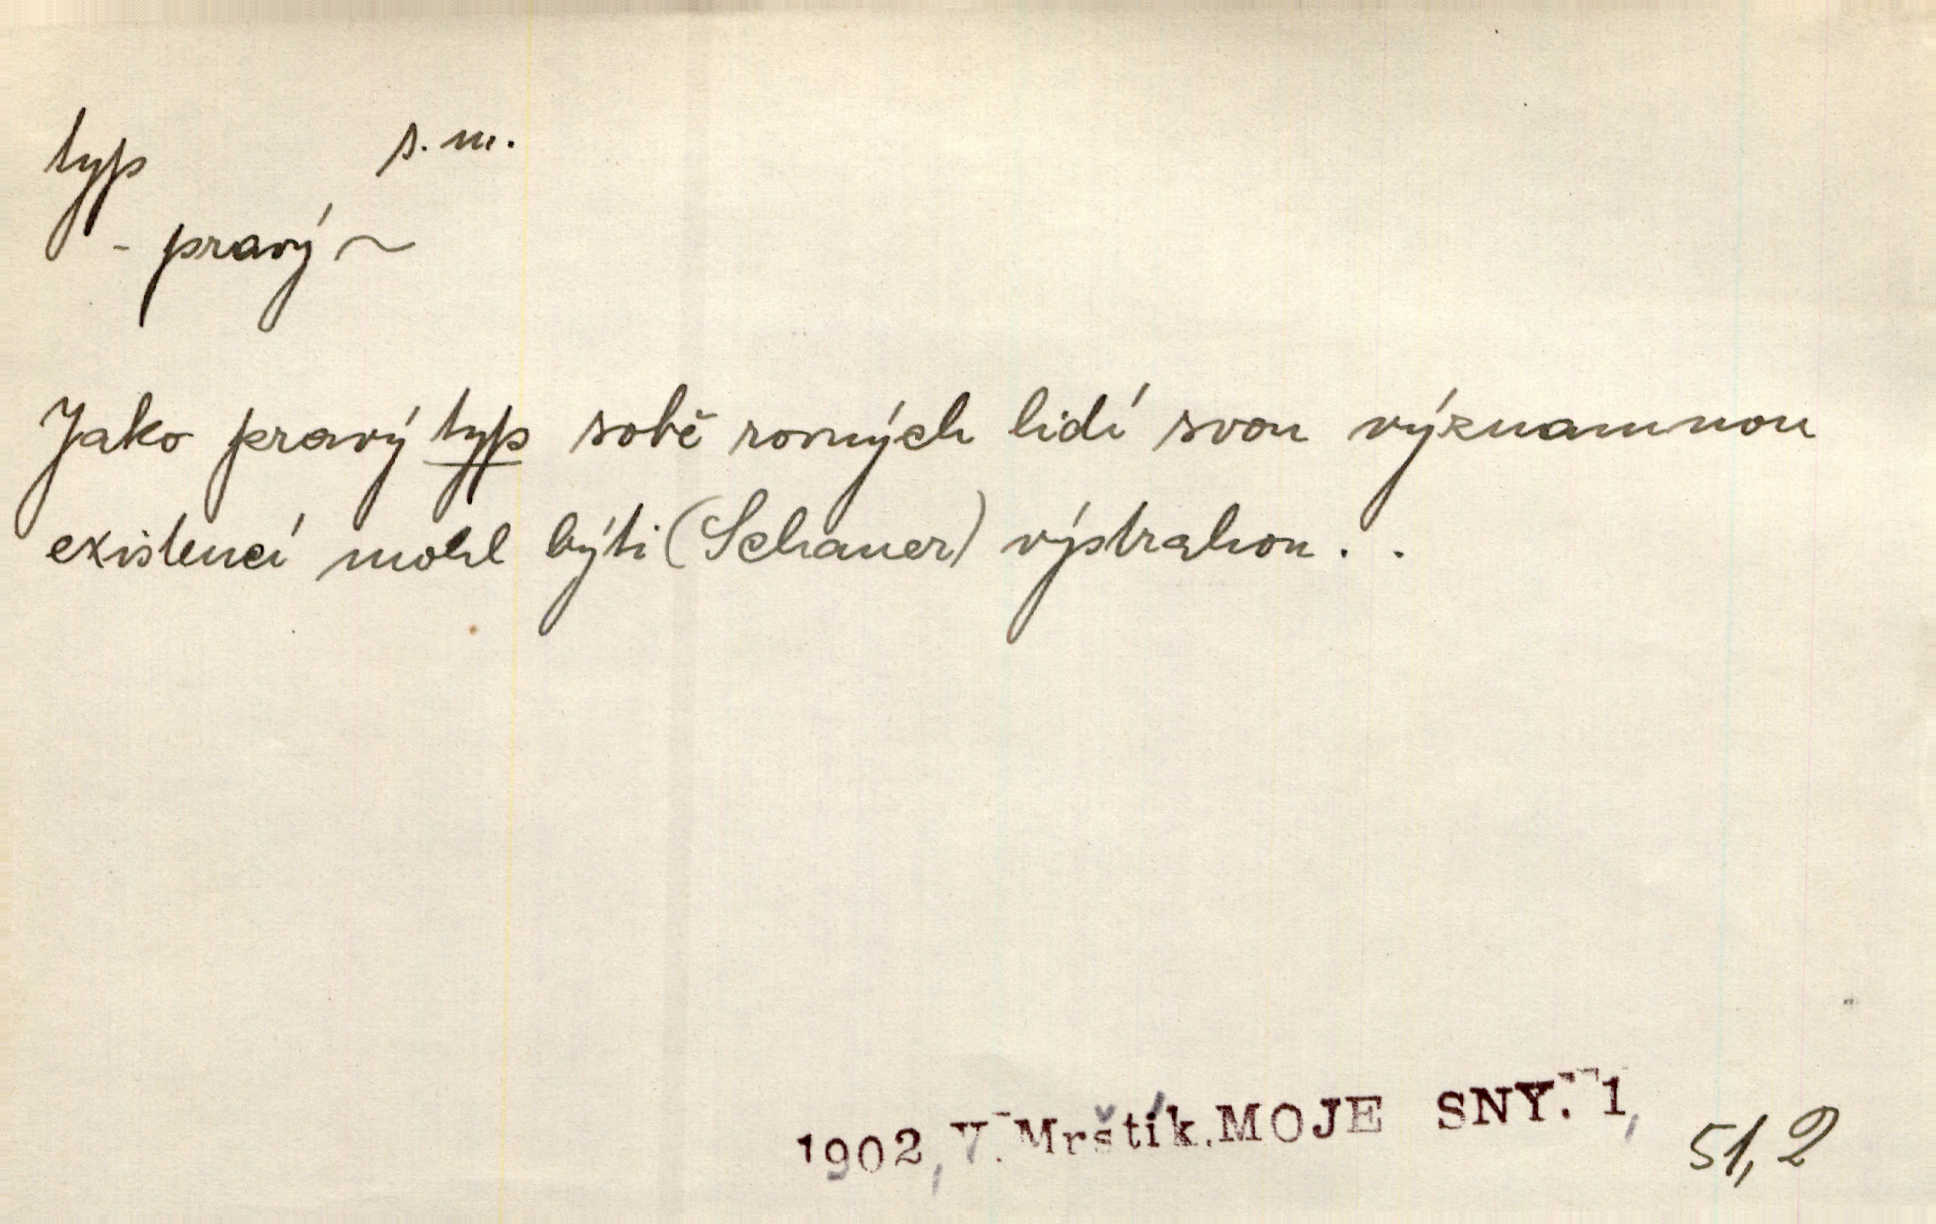 typ s. m.
- pravý ~
Jako pravý typ sobě rovných lidí svou významnou
existencí mohl býti (Schauer) výstrahou . .
1902, V. Mrštík. MOJE SNY. 1, 51,2